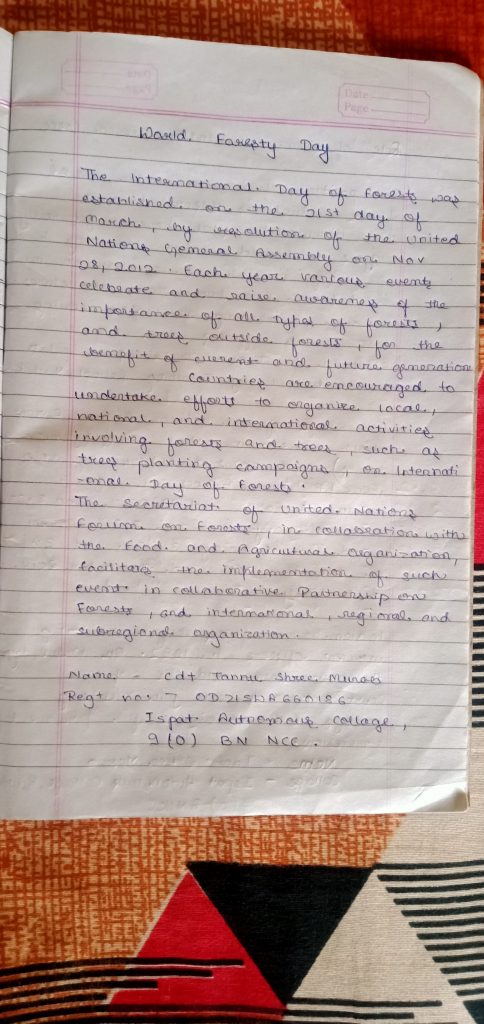 Date
Page
World Foresty Day
The International Day of Forests was
established on the 21st day of
March, by resolution of the United
Nations General Assembly on Nov
28, 2012. Each year various events
celebrate and raise awareness of the
importance of all types of forests,
and trees outside forests, for the
benefit of current and future generation
Countries are encouraged to
undertake efforts to organize local,
national, and international activities
involving forests and trees, such as
trees planting campaigns, on Internati
-onal Day of Forests.
The Secretariat of United Nations
Forum on Forests, in collaboration with
the Food and Agricultural Organization,
facilitates the implementation of such
event in collaborative Partnership on
Forests, and international, regional and
subregional organization.
Name - Cdt Tannu Shree
Regt no: - OD21SWA660186
Ispat Autnomous Collage,
9 (O) BN NCC.